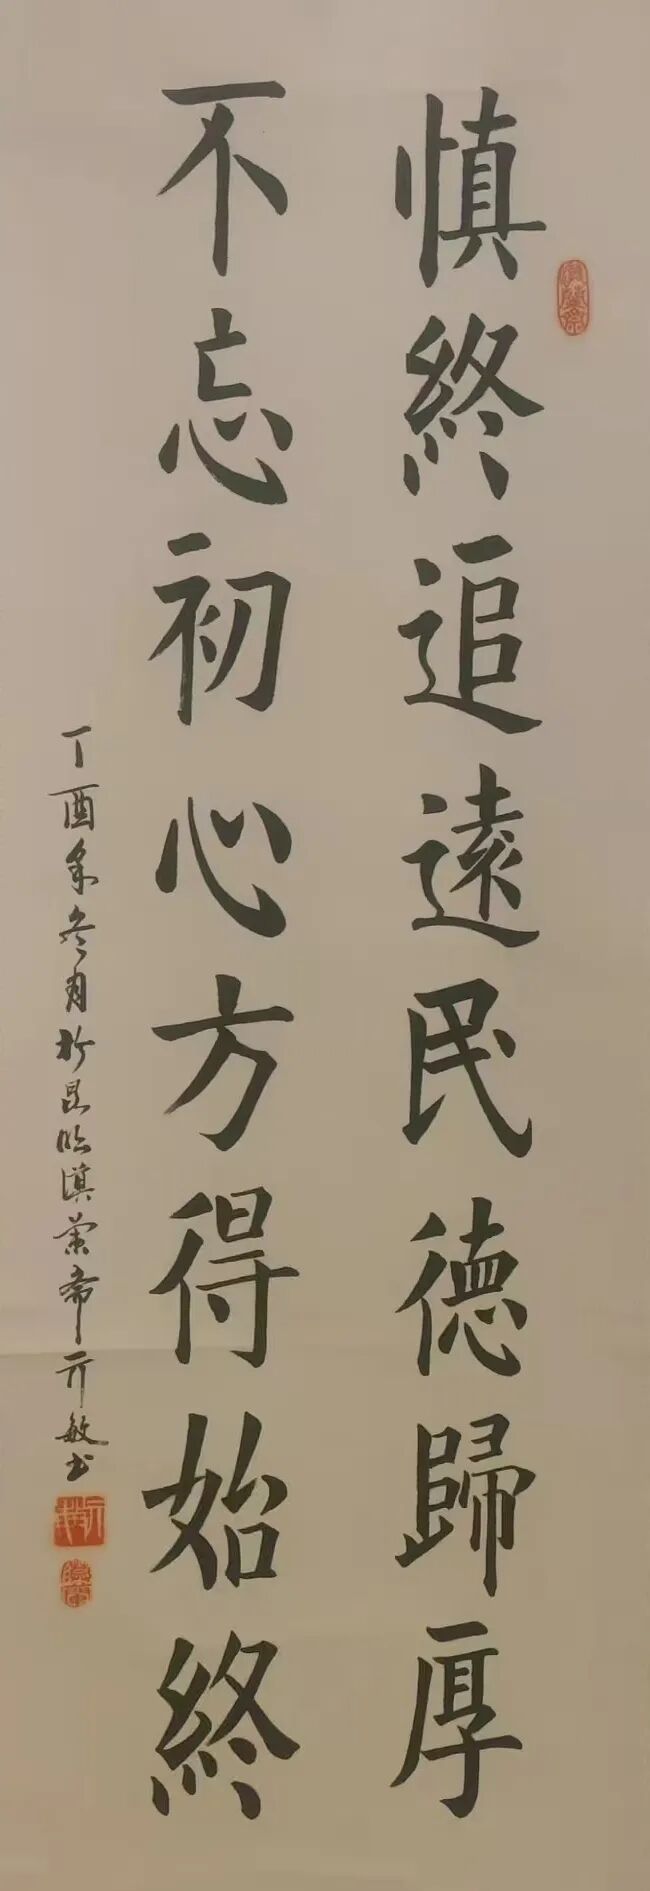 慎終追遠民德歸厚
不忘初心方得始終
丁酉年冬月於昆明滇蘭斋亓敏书